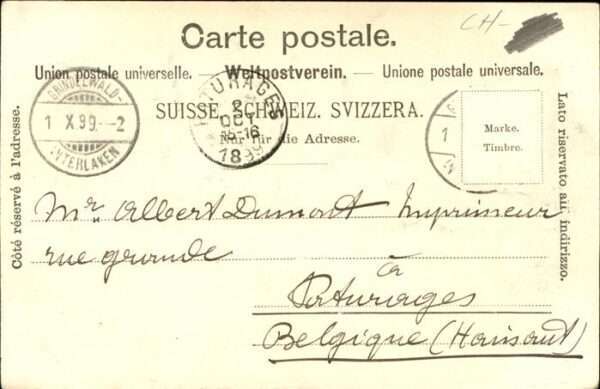 CH-
Carte postale.
Union postale universelle. — Weltpostverein. — Unione postale universale.
SUISSE. SCHWEIZ. SVIZZERA.
Nur für die Adresse.
GRINDELWALD-
1 X.99.–2
INTERLAKEN
PATURAGES
2
OCT
15-16
1899
1
Marke.
Timbre.
Côté réservé à l'adresse.
Lato riservato all' indirizzo.
Mr. Albert Dumont Imprimeur
rue grande
à
Paturages
Belgique (Hainaut)